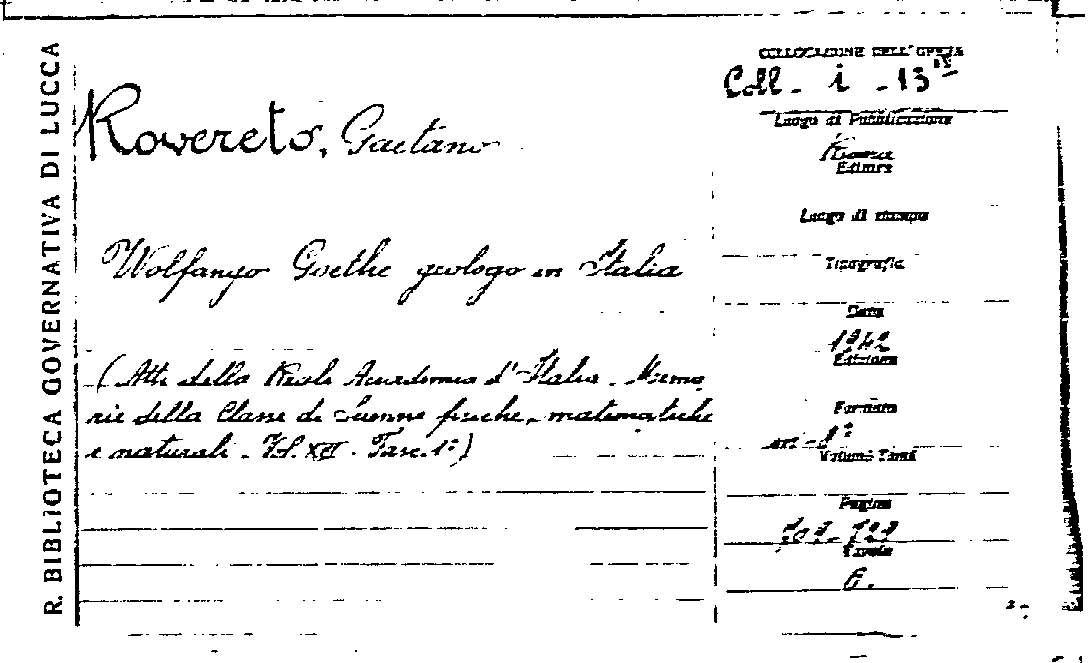 R. BIBLIOTECA GOVERNATIVA DI LUCCA
Rovereto, Gaetano
Wolfango Goethe geologo in Italia
(Atti della Reale Accademia d'Italia. Memo
rie della Classe di Scienze fisiche, matematiche
e naturali. Vol. XIII. Fasc. 1º)
COLLOCAZIONE DELL'OPERA
Coll - i - 13
Luogo di Pubblicazione
Roma
Editore
Luogo di stampa
Tipografia
Data
1942
Edizione
Formato
in-8º
Volume Tomi
Pagine
Tavole
6.